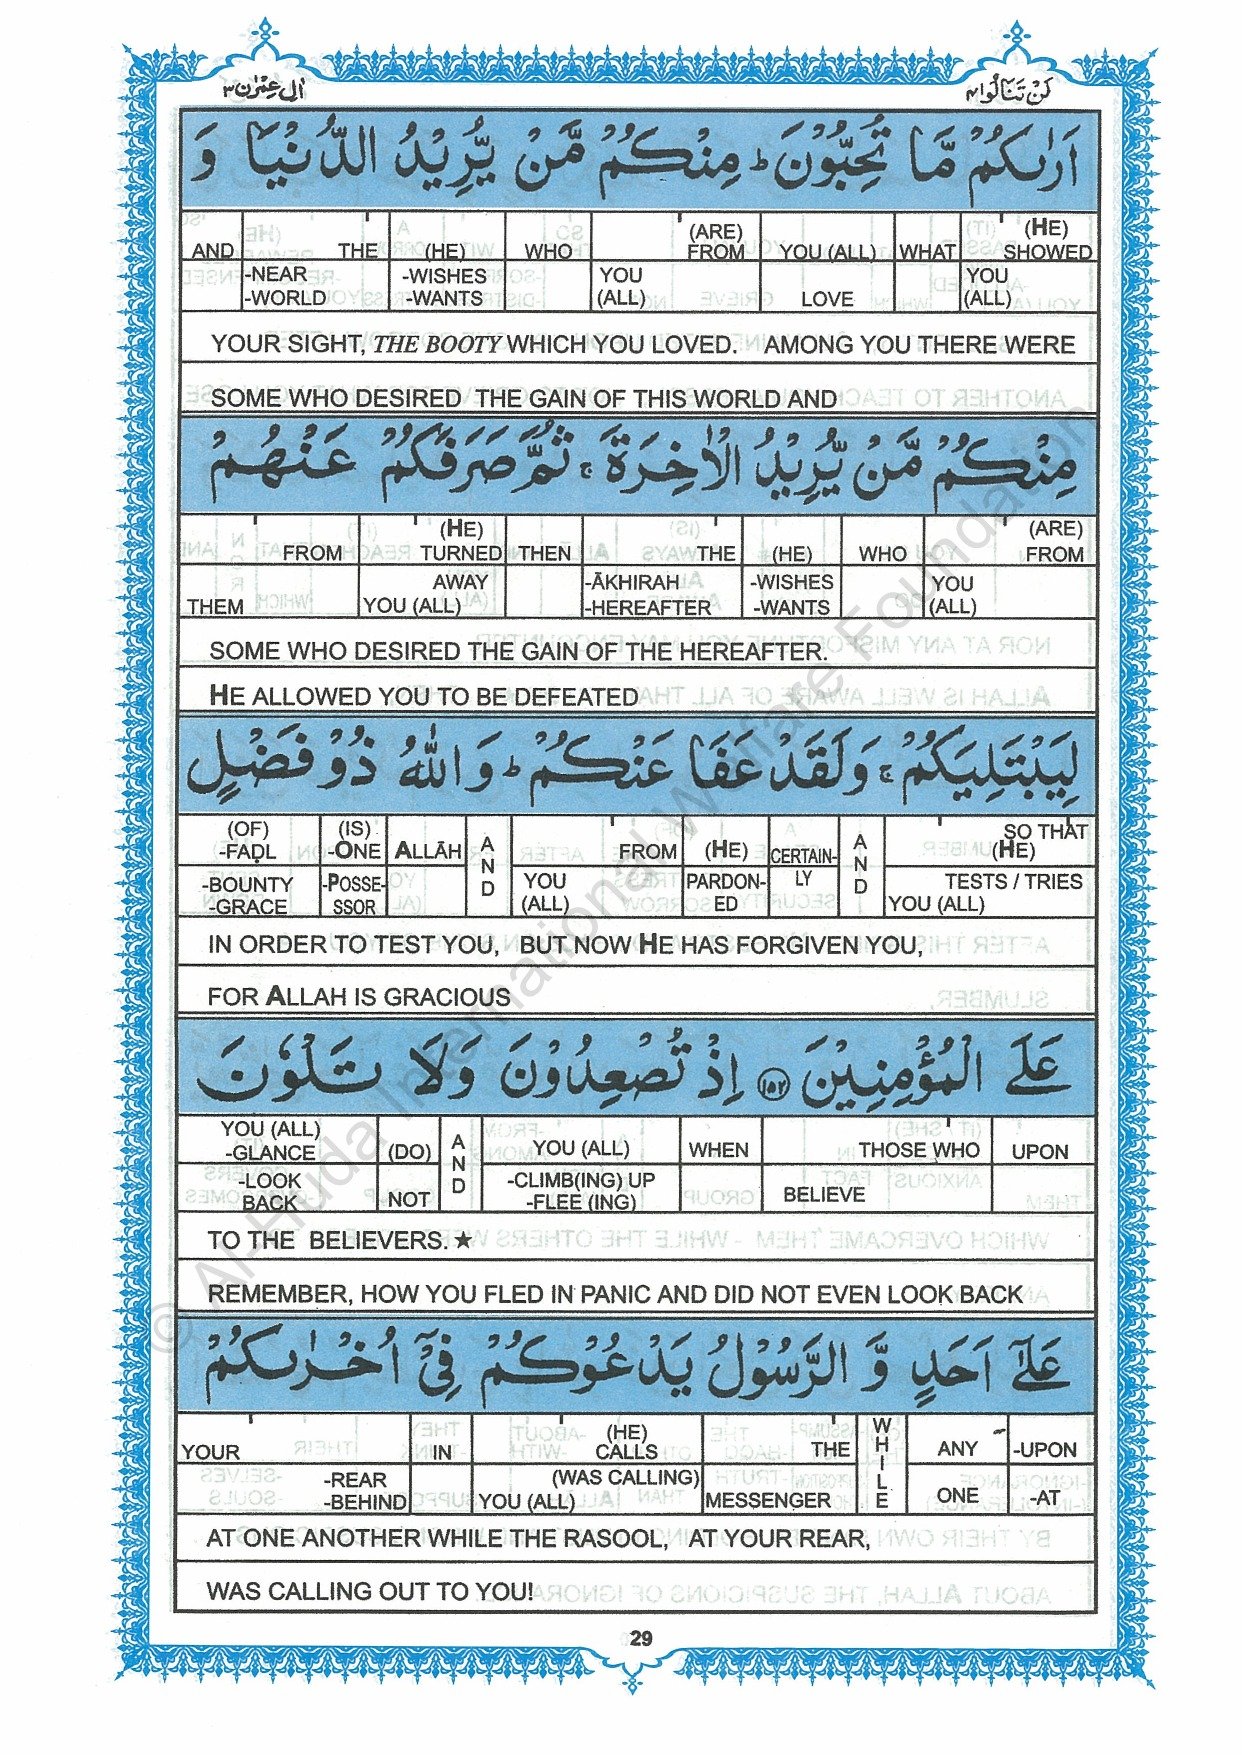 اٰلِ عِمْرٰن ۳
لَنْ تَنَالُوا ۴
اَرٰىكُمْ مَّا تُحِبُّوْنَ ؕ مِنْكُمْ مَّنْ يُّرِيْدُ الدُّنْيَا وَ
AND THE (HE) WHO (ARE) FROM YOU (ALL) WHAT (HE) SHOWED
-NEAR -WORLD -WISHES -WANTS YOU (ALL) LOVE YOU (ALL)
YOUR SIGHT, THE BOOTY WHICH YOU LOVED. AMONG YOU THERE WERE
SOME WHO DESIRED THE GAIN OF THIS WORLD AND
مِنْكُمْ مَّنْ يُّرِيْدُ الْاٰخِرَةَ ۚ ثُمَّ صَرَفَكُمْ عَنْهُمْ
FROM (HE) TURNED THEN THE (HE) WHO (ARE) FROM
THEM AWAY YOU (ALL) -ĀKHIRAH -HEREAFTER -WISHES -WANTS YOU (ALL)
SOME WHO DESIRED THE GAIN OF THE HEREAFTER.
HE ALLOWED YOU TO BE DEFEATED
لِيَبْتَلِيَكُمْ ۚ وَلَقَدْ عَفَا عَنْكُمْ ؕ وَاللّٰهُ ذُوْ فَضْلٍ
(OF) -FAḌL (IS) -ONE ALLĀH AND FROM (HE) CERTAIN- AND SO THAT (HE)
-BOUNTY -GRACE -POSSE-SSOR YOU (ALL) PARDON-ED LY TESTS / TRIES YOU (ALL)
IN ORDER TO TEST YOU, BUT NOW HE HAS FORGIVEN YOU,
FOR ALLAH IS GRACIOUS
عَلَى الْمُؤْمِنِيْنَ ۝۱۵۲ اِذْ تُصْعِدُوْنَ وَلَا تَلْوٗنَ
YOU (ALL) -GLANCE (DO) AND YOU (ALL) WHEN THOSE WHO UPON
-LOOK BACK NOT -CLIMB(ING) UP -FLEE (ING) BELIEVE
TO THE BELIEVERS. ★
REMEMBER, HOW YOU FLED IN PANIC AND DID NOT EVEN LOOK BACK
عَلٰٓى اَحَدٍ وَّ الرَّسُوْلُ يَدْعُوْكُمْ فِيْٓ اُخْرٰىكُمْ
YOUR IN (HE) CALLS THE WHILE ANY -UPON
-REAR -BEHIND (WAS CALLING) YOU (ALL) MESSENGER ONE -AT
AT ONE ANOTHER WHILE THE RASOOL, AT YOUR REAR,
WAS CALLING OUT TO YOU!
29
© Al-Huda International Welfare Foundation